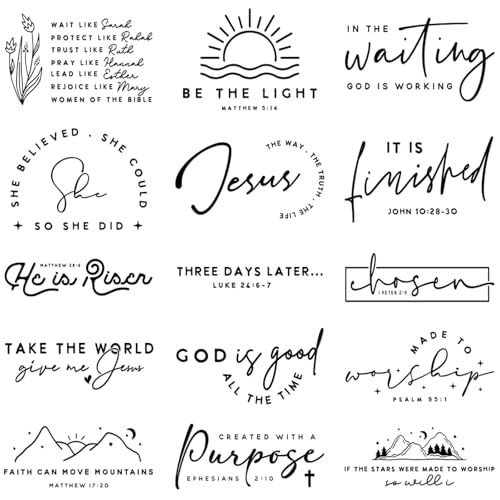 WAIT LIKE Sarah
PROTECT LIKE Rahab
TRUST LIKE Ruth
PRAY LIKE Hannah
LEAD LIKE Esther
REJOICE LIKE Mary
WOMEN OF THE BIBLE
BE THE LIGHT
MATTHEW 5:14
IN THE
waiting
GOD IS WORKING
SHE BELIEVED · SHE COULD
She
SO SHE DID
Jesus
THE WAY · THE TRUTH · THE LIFE
IT IS
finished
JOHN 10:28-30
MATTHEW 28:6
He is Risen
THREE DAYS LATER...
LUKE 24:6-7
chosen
1 PETER 2:9
TAKE THE WORLD
give me Jesus
GOD is good
ALL THE TIME
MADE TO
worship
PSALM 95:1
FAITH CAN MOVE MOUNTAINS
MATTHEW 17:20
CREATED WITH A
Purpose
EPHESIANS 2:10
IF THE STARS WERE MADE TO WORSHIP
so will i